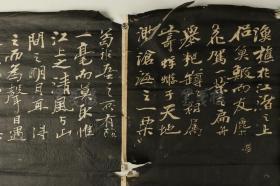 漁樵於江渚之上
侶魚蝦而友麋
鹿駕一葉之扁舟
舉匏樽以相屬
寄蜉蝣于天地
渺滄海之一粟
苟非吾之所有雖
一毫而莫取惟
江上之清風与山
間之明月耳得
之而為聲目遇